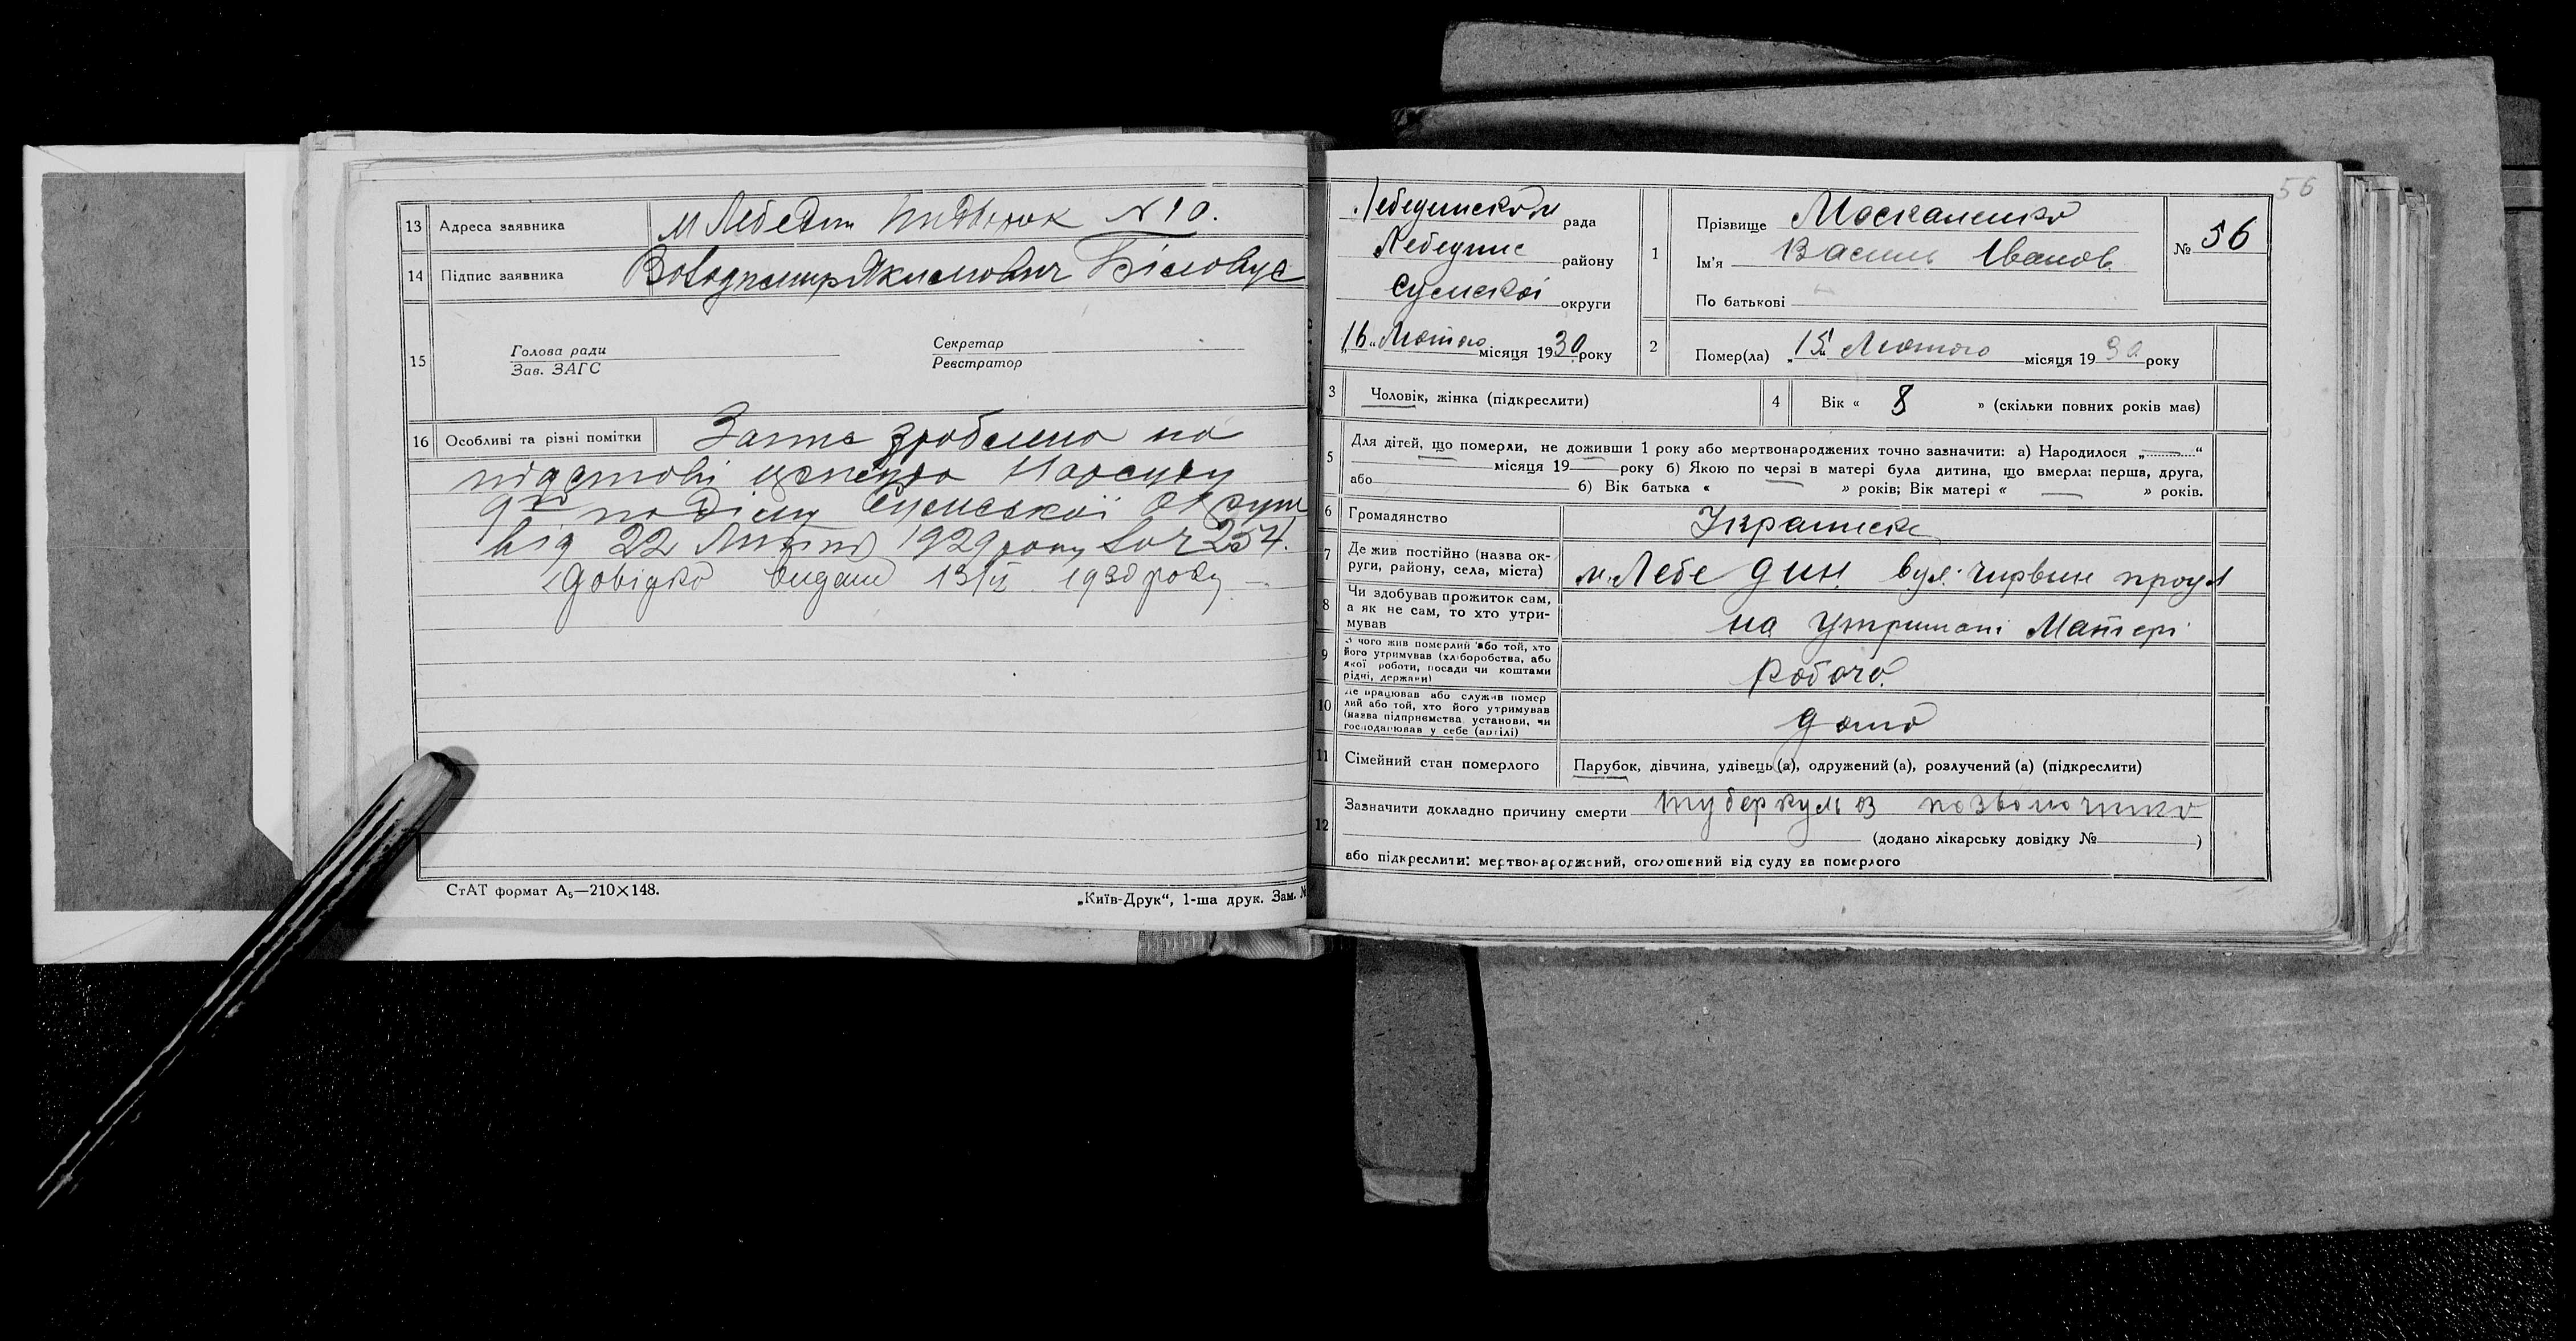 13 Адреса заявника м Лебедин N 10.
14 Підпис заявника Володимир Якимович Біловус
15 Голова ради
Зав. ЗАГС
Секретар
Реєстратор
16 Особливі та різні помітки Запис зроблено на
підставі Нарсуду
9го Сумської Округи
від 22 1929 року 254.
Довідка видана 13/II 1930 року
СтАТ формат А₅—210×148.
„Київ-Друк“, 1-ша друк. Зам. №
56
Лебединськой рада
Лебединс району
Сумської округи
„16„ Лютого місяця 1930 року
1 Прізвище Москаленко
Ім'я Василь Іванов.
По батькові
№ 56
2 Помер(ла) „15„ Лютого місяця 1930 року
3 Чоловік, жінка (підкреслити)
4 Вік « 8 » (скільки повних років має)
5 Для дітей, що померли, не доживши 1 року або мертвонароджених точно зазначити: а) Народилося „—“
або — місяця 19— року б) Якою по черзі в матері була дитина, що вмерла: перша, друга,
— б) Вік батька « — » років; Вік матері « — » років.
6 Громадянство Українськ
7 Де жив постійно (назва ок-
руги, району, села, міста) м. Лебедин вул. червін
8 Чи здобував прожиток сам,
а як не сам, то хто утри-
мував на утримані Матері
9 З чого жив померлий або той, хто
його утримував (хліборобства, або
якої роботи, посади чи коштами
рідні, держави) робоча
10 Де працював або служив помер
лий або той, хто його утримував
(назва підприємства установи, чи
господарював у себе (артілі) дома
11 Сімейний стан померлого Парубок, дівчина, удівець (а), одружений (а), розлучений (а) (підкреслити)
12 Зазначити докладно причину смерти туберкульоз позвоночника
(додано лікарську довідку № )
або підкреслити: мертвонароджений, оголошений від суду за померлого